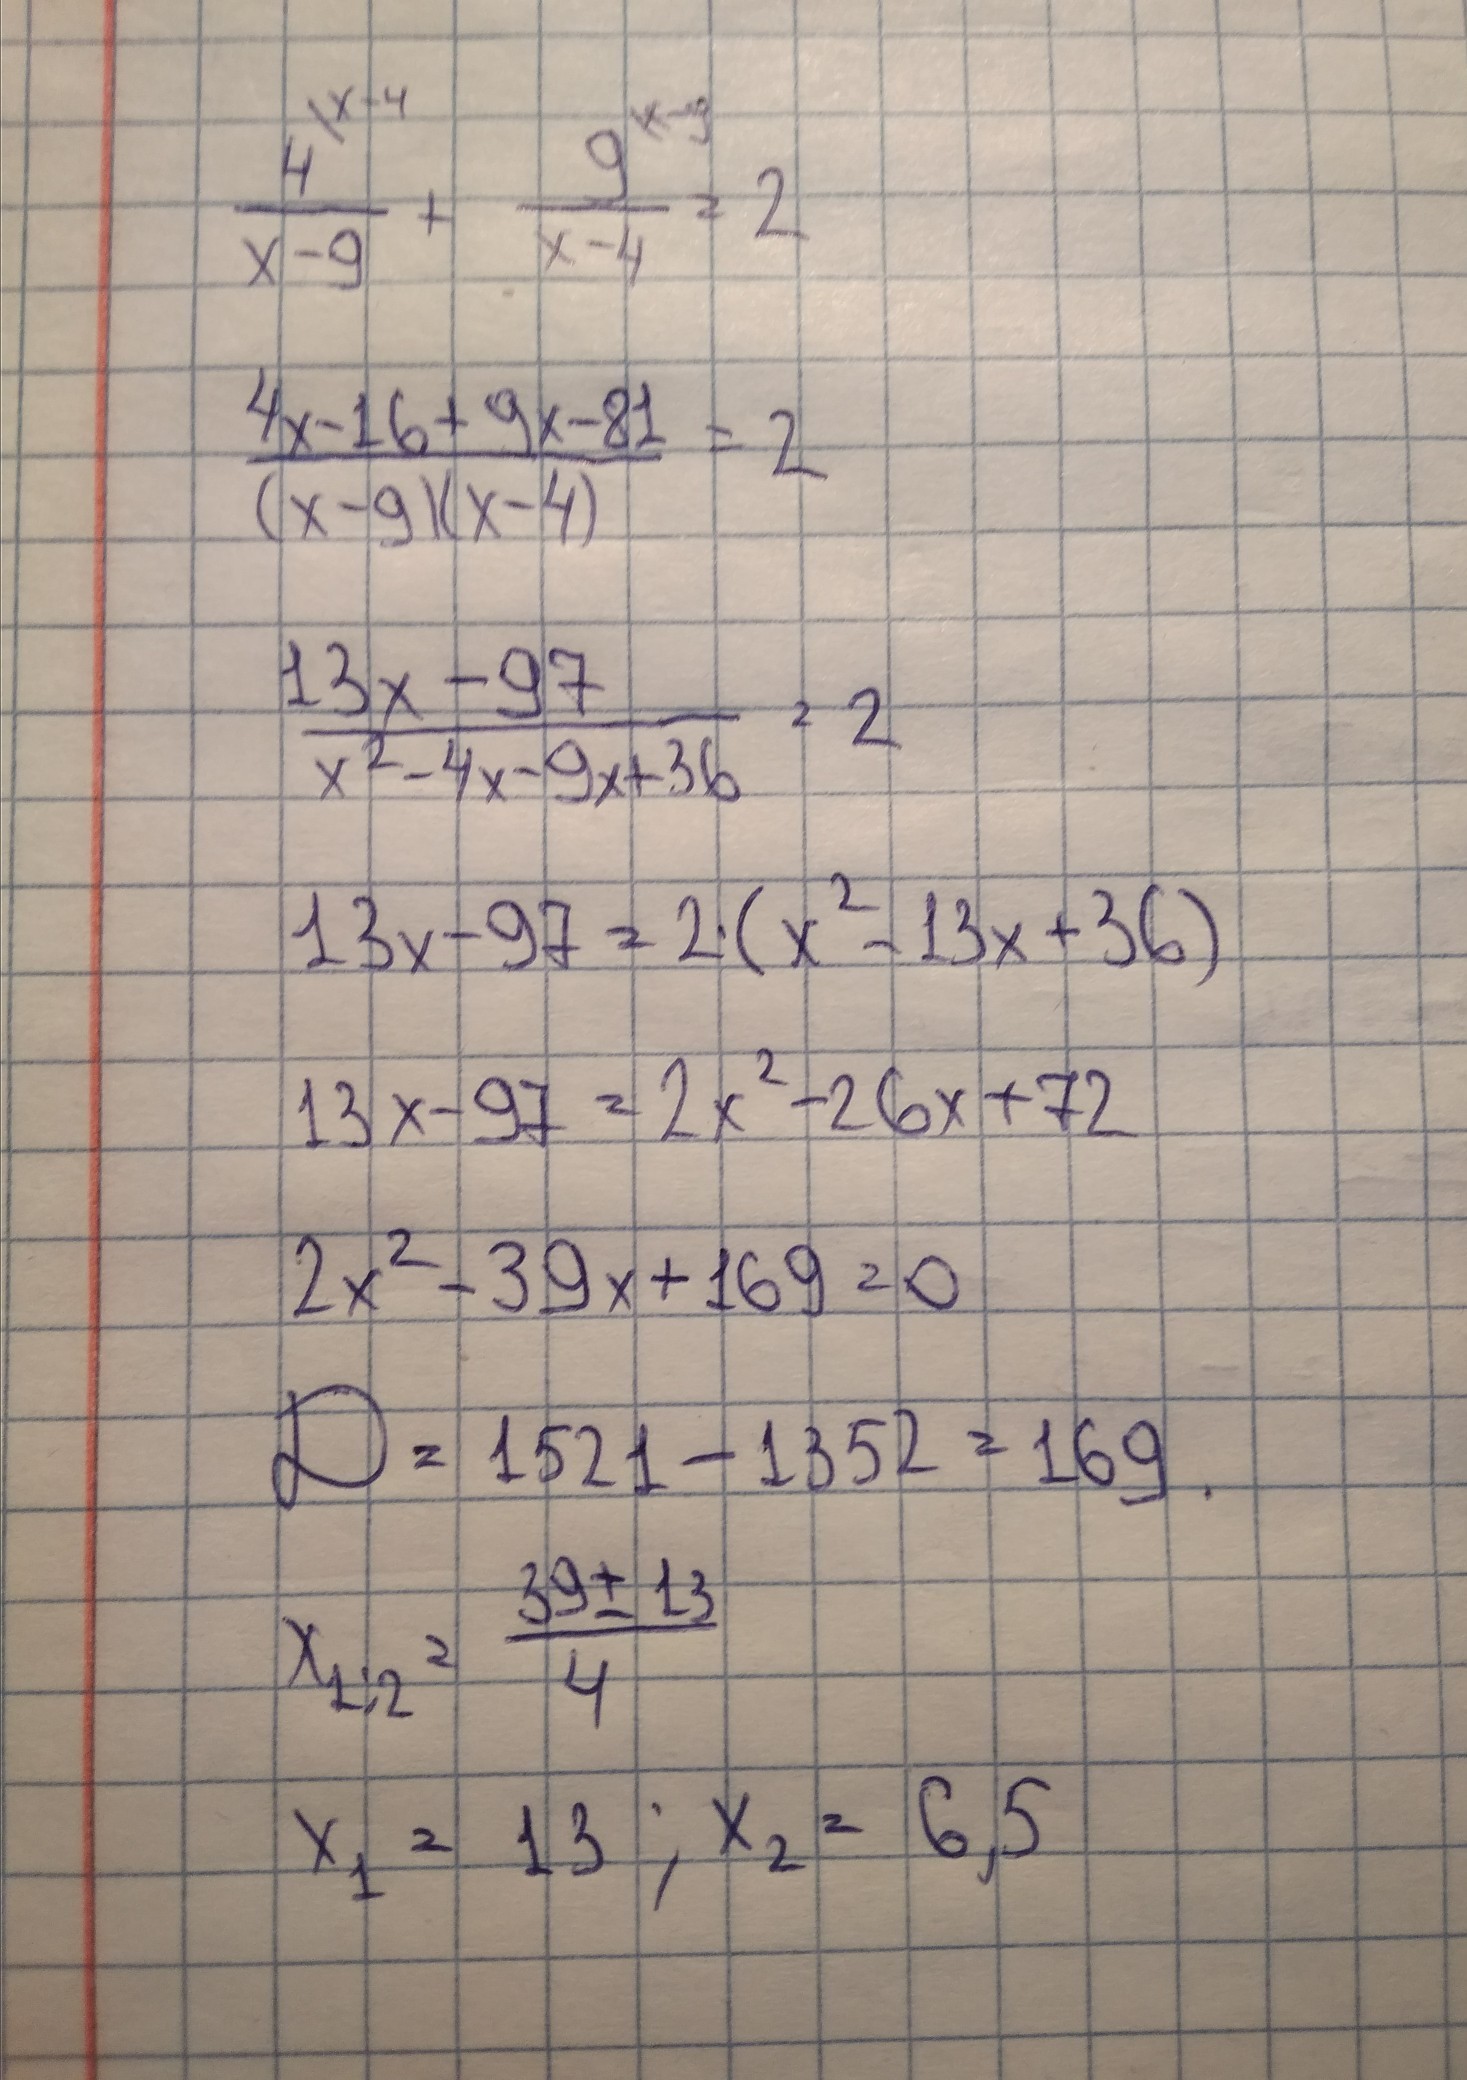 4^{\x-4}/(x-9) + 9^{\x-9}/(x-4) = 2
(4x-16+9x-81)/((x-9)(x-4)) = 2
(13x-97)/(x²-4x-9x+36) = 2
13x-97=2·(x²-13x+36)
13x-97=2x²-26x+72
2x²-39x+169=0
D=1521-1352=169.
x₁;₂=(39±13)/4
x₁=13; x₂=6,5